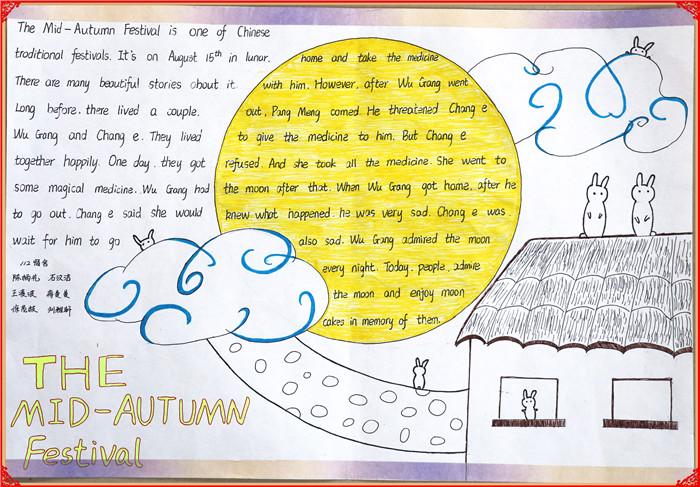 The Mid-Autumn Festival is one of Chinese
traditional festivals. It's on August 15th in lunar.
There are many beautiful stories about it.
Long before, there lived a couple.
Wu Gang and Chang e. They lived
together happily. One day, they got
some magical medicine. Wu Gang had
to go out. Chang e said she would
wait for him to go
home and take the medicine
with him. However, after Wu Gang went
out, Pang Meng comed He threatened Chang e
to give the medicine to him. But Chang e
refused. And she took all the medicine. She went to
the moon after that. When Wu Gang got home, after he
knew what happened. he was very sad. Chang e was
also sad. Wu Gang admired the moon
every night. Today, people, admire
the moon and enjoy moon
cakes in memory of them.
112宿舍
THE
MID-AUTUMN
Festival